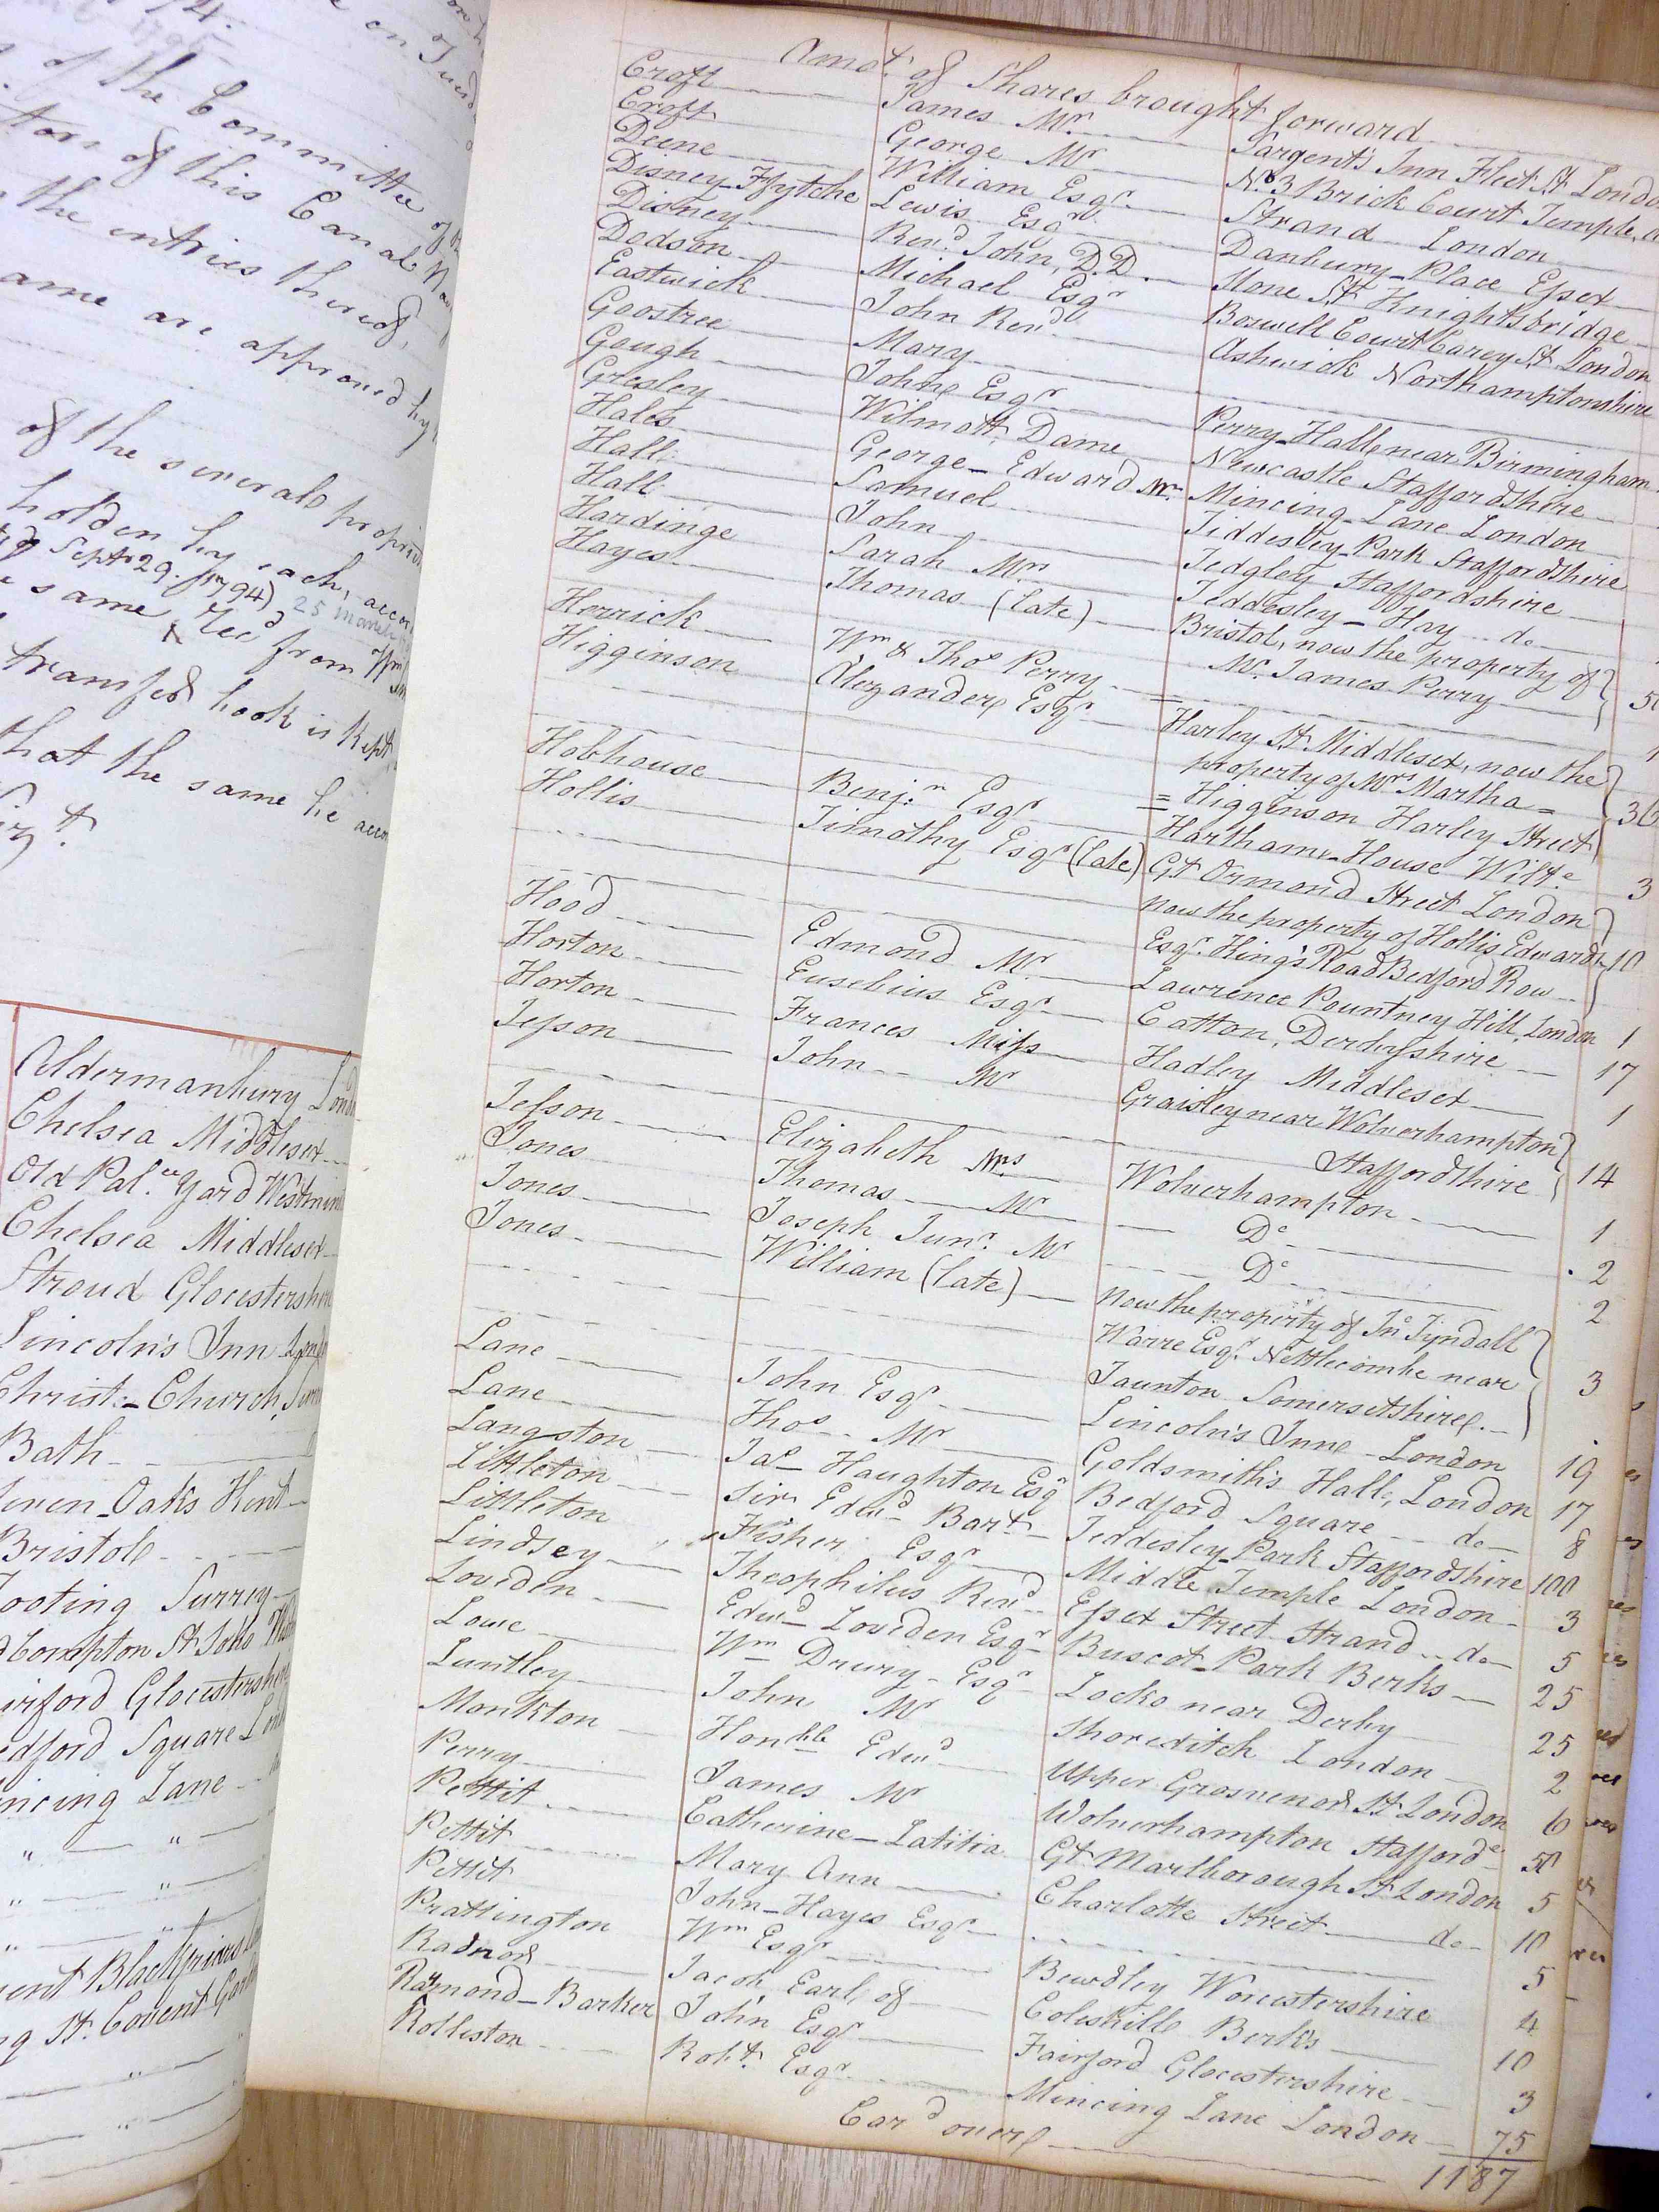 of the Committee of
of this Canal
the entries thereof,
ame are approved by
of the several propri
holden by each, accor
Sept. 29. 1794) 25 March
same Rec.d from Wm
transfer book is kept
that the same be
Aldermanbury Lond
Chelsea Middlesex
Old Pal.ce Yard Westmins
Chelsea Middlesex
Stroud Glocestershire
Lincoln's Inn Lond
Christ-Church, Surr
Bath
Seven-Oaks Kent
Bristol
Tooting Surrey
Compton St Soho
airford Glocestershire
edford Square Lond
incing Lane
Blackfriars
St. Covent Gard
Amot. of Shares brought forward
Croft James Mr. Sargents Inn Fleet St. Londo
Croft George Mr No.3 Brick Court Temple, d
Deene William Esqr. Strand London
Disney-Ffytche Lewis Esqr Danbury-Place Essex
Disney Rev.d John, D.D. Slone St. Knightsbridge
Dodson Michael Esqr Boswell Court Carey St. London
Eastwick John Rev.d Ashwick Northamptonshire
Goostree Mary
Gough John Esqr Perry-Hall near Birmingham
Gresley Wilmott, Dame Newcastle Staffordshire
Hales George-Edward Mr. Mincing-Lane London
Hall Samuel Tiddesley-Park Staffordshire
Hall John Sedgley Staffordshire
Hardinge Sarah Mrs Teddesley-Hay do
Hayes Thomas (late) Bristol, now the property of
Mr. James Perry 50
Herrick Wm & Thos Perry
Higginson Alexander Esqr Harley St. Middlesex, now the
property of Mrs Martha =
= Higginson Harley Street 36
Hobhouse Benj.n Esqr Hartham-House Wilts 3
Hollis Timothy Esqr (late) Gt Ormond Street London
now the property of Hollis Edwards
Esqr. King's Road Bedford Row 10
Hood Edmond Mr Lawrence Pountney Hill, London 1
Horton Eusebius Esqr. Catton, Derbyshire 17
Horton Frances Miss Hadley Middlesex 1
Jesson John Mr Graisley near Wolverhampton
Staffordshire 14
Jesson Elizabeth Mrs Wolverhampton 1
Jones Thomas Mr Do 2
Jones Joseph Junr. Mr Do 2
Jones William (late) Now the property of Jno Tyndall
Warre Esqr. Nettlecombe near
Taunton Somersetshire 3
Lane John Esqr Lincoln's Inn - London 19
Lane Thos Mr Goldsmith's Hall, London 17
Langston Jas Haughton Esqr Bedford Square do 8
Littleton Sir Edwd Bart. Teddesley-Park Staffordshire 100
Littleton Fisher Esqr Middle Temple London 3
Lindsey Theophilus Revd Essex Street Strand do 5
Loveden Edwd Loveden Esqr Buscot-Park Berks 25
Lowe Wm Drury Esqr Locko near Derby 25
Luntley John Mr Shoreditch London 2
Monkton Honble Edwd Upper Grosvenor St. London 6
Perry James Mr Wolverhampton Stafford 50
Pettit Catherine-Latitia Gt. Marlborough St. London 5
Pettit Mary Ann Charlotte Street do 10
Pettit John-Hayes Esqr. 5
Prattington Wm Esqr Bewdley Worcestershire 4
Radnor Jacob, Earl of Coleshille Berks 10
Raymond-Barker John Esqr Fairford Glocestershire 3
Rolleston Robt. Esqr. Mincing Lane London 75
Car.d over 1187